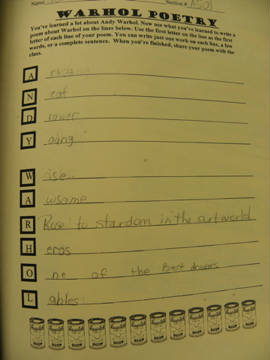 WARHOL POETRY
You've learned a lot about Andy Warhol. Now use what you've learned to write a
poem about Warhol on the lines below. Use the first letter on the line as the first
letter of each line of your poem. You can write just one work on each box, a few
words, or a complete sentence. When you're finished, share your poem with the
class.
A
N eat
D
Y oung
W ise
A wsome
R Rose to stardom in the art world
H eros
O ne of the Best
L ables